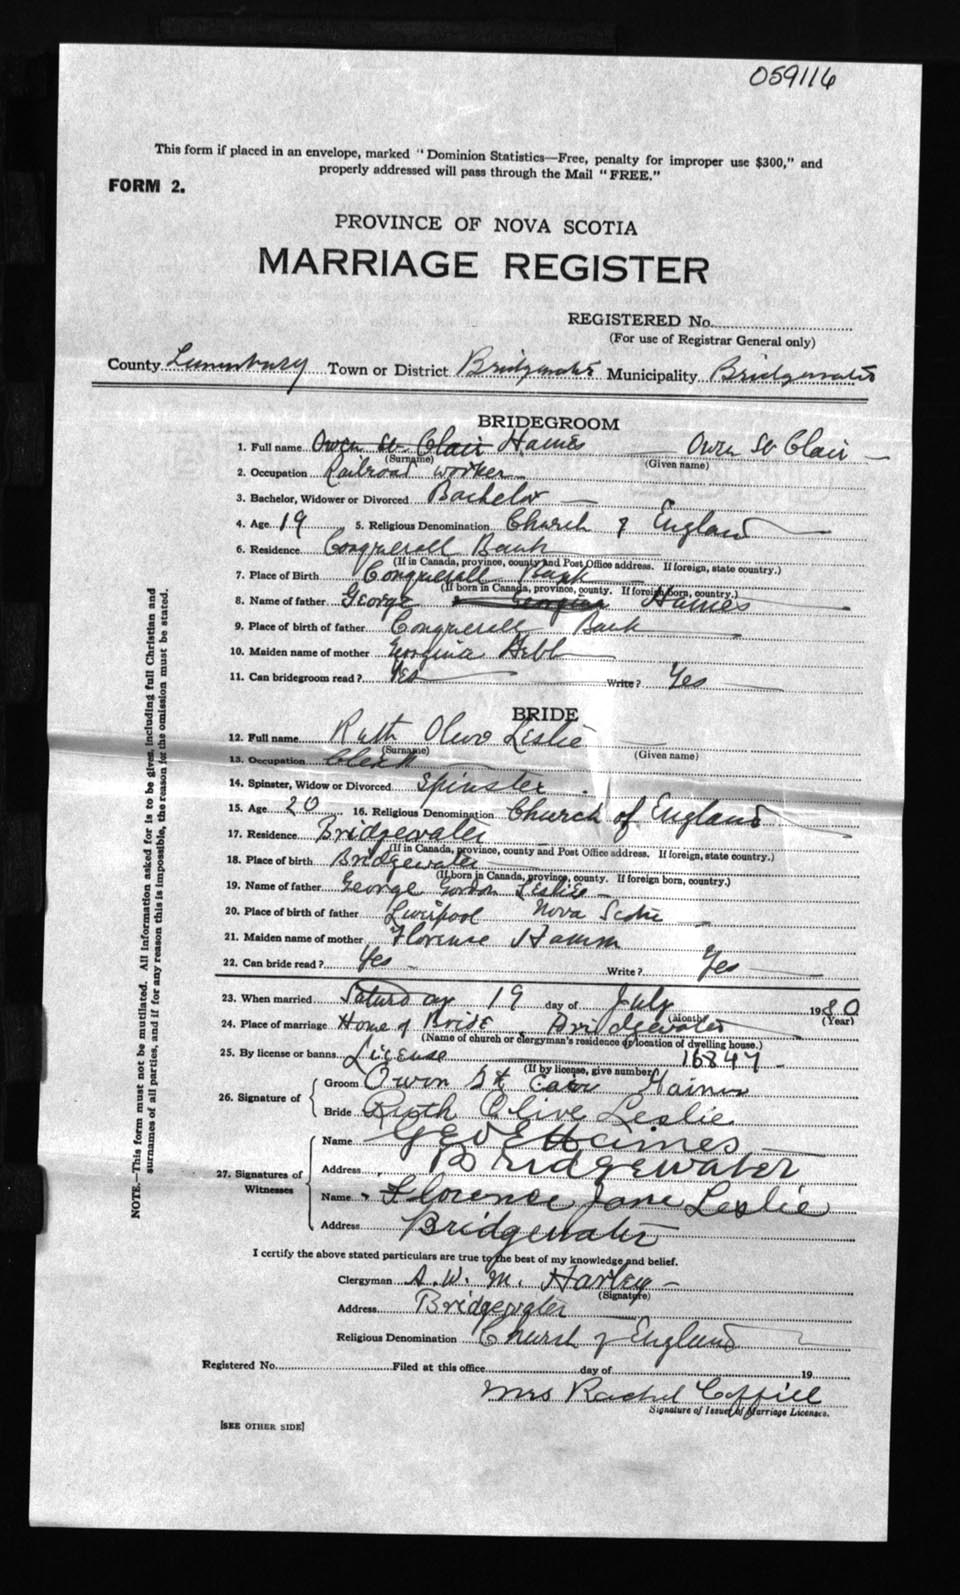 059116
This form if placed in an envelope, marked "Dominion Statistics—Free, penalty for improper use $300," and
properly addressed will pass through the Mail "FREE."
FORM 2.
PROVINCE OF NOVA SCOTIA
MARRIAGE REGISTER
REGISTERED No.
(For use of Registrar General only)
County Lunenburg Town or District Bridgewater Municipality Bridgewater
BRIDEGROOM
1. Full name Owen St Clair Haines Owen St Clair
(Surname) (Given name)
2. Occupation Railroad worker
3. Bachelor, Widower or Divorced Bachelor
4. Age 19 5. Religious Denomination Church of England
6. Residence Conquerall Bank
(If in Canada, province, county and Post Office address. If foreign, state country.)
7. Place of Birth Conquerall Bank
(If born in Canada, province, county. If foreign born, country.)
8. Name of father George Georgina Haines
9. Place of birth of father Conquerall Bank
10. Maiden name of mother Georgina Hebb
11. Can bridegroom read? Yes Write? Yes
BRIDE
12. Full name Ruth Olive Leslie
(Surname) (Given name)
13. Occupation Clerk
14. Spinster, Widow or Divorced Spinster
15. Age 20 16. Religious Denomination Church of England
17. Residence Bridgewater
(If in Canada, province, county and Post Office address. If foreign, state country.)
18. Place of birth Bridgewater
(If born in Canada, province, county. If foreign born, country.)
19. Name of father George Gordon Leslie
20. Place of birth of father Liverpool Nova Scotia
21. Maiden name of mother Florence Hamm
22. Can bride read? Yes Write? Yes
23. When married Saturday 19 day of July 1930
(Month) (Year)
24. Place of marriage Home of Bride, Bridgewater
(Name of church or clergyman's residence or location of dwelling house.)
25. By license or banns License 16847
(If by license, give number)
26. Signature of Groom Owen St Haines
Bride Ruth Olive Leslie
27. Signatures of Witnesses Name Geo E Haines
Address Bridgewater
Name Florence Jane Leslie
Address Bridgewater
I certify the above stated particulars are true to the best of my knowledge and belief.
Clergyman A. W. M. Harley
(Signature)
Address Bridgewater
Religious Denomination Church of England
Registered No. Filed at this office day of 19
Mrs Rachel Coffill
Signature of Issuer of Marriage Licenses.
[SEE OTHER SIDE]
NOTE.—This form must not be mutilated. All information asked for is to be given, including full Christian and
surnames of all parties, and if for any reason this is impossible, the reason for the omission must be stated.